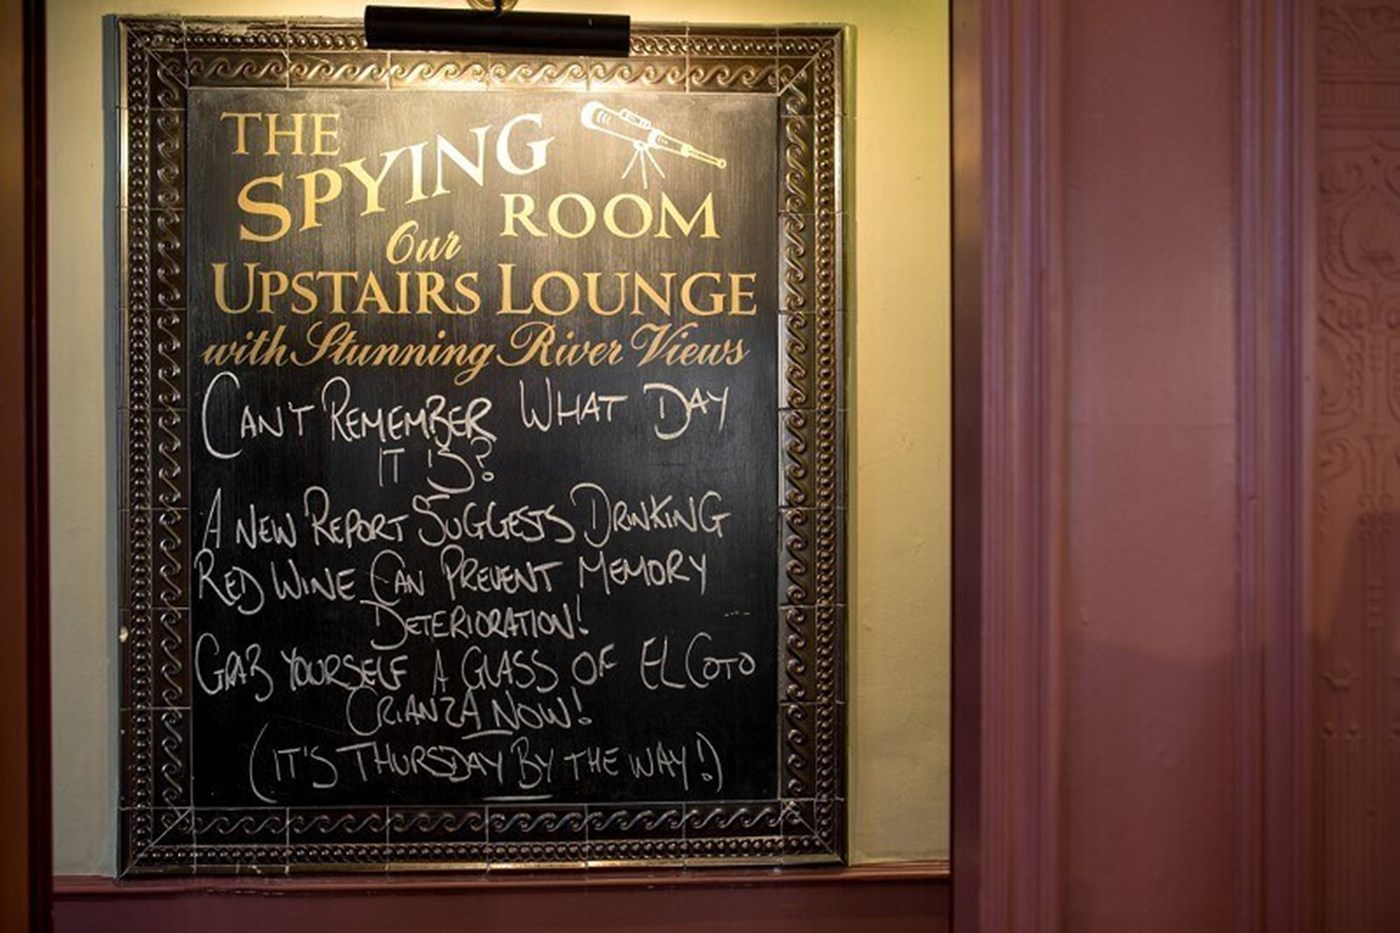 THE
SPYING
ROOM
Our
UPSTAIRS LOUNGE
with Stunning River Views
CAN'T REMEMBER WHAT DAY
IT IS?
A NEW REPORT SUGGESTS DRINKING
RED WINE CAN PREVENT MEMORY
DETERIORATION!
GRAB YOURSELF A GLASS OF EL COTO
CRIANZA NOW!
(IT'S THURSDAY BY THE WAY!)